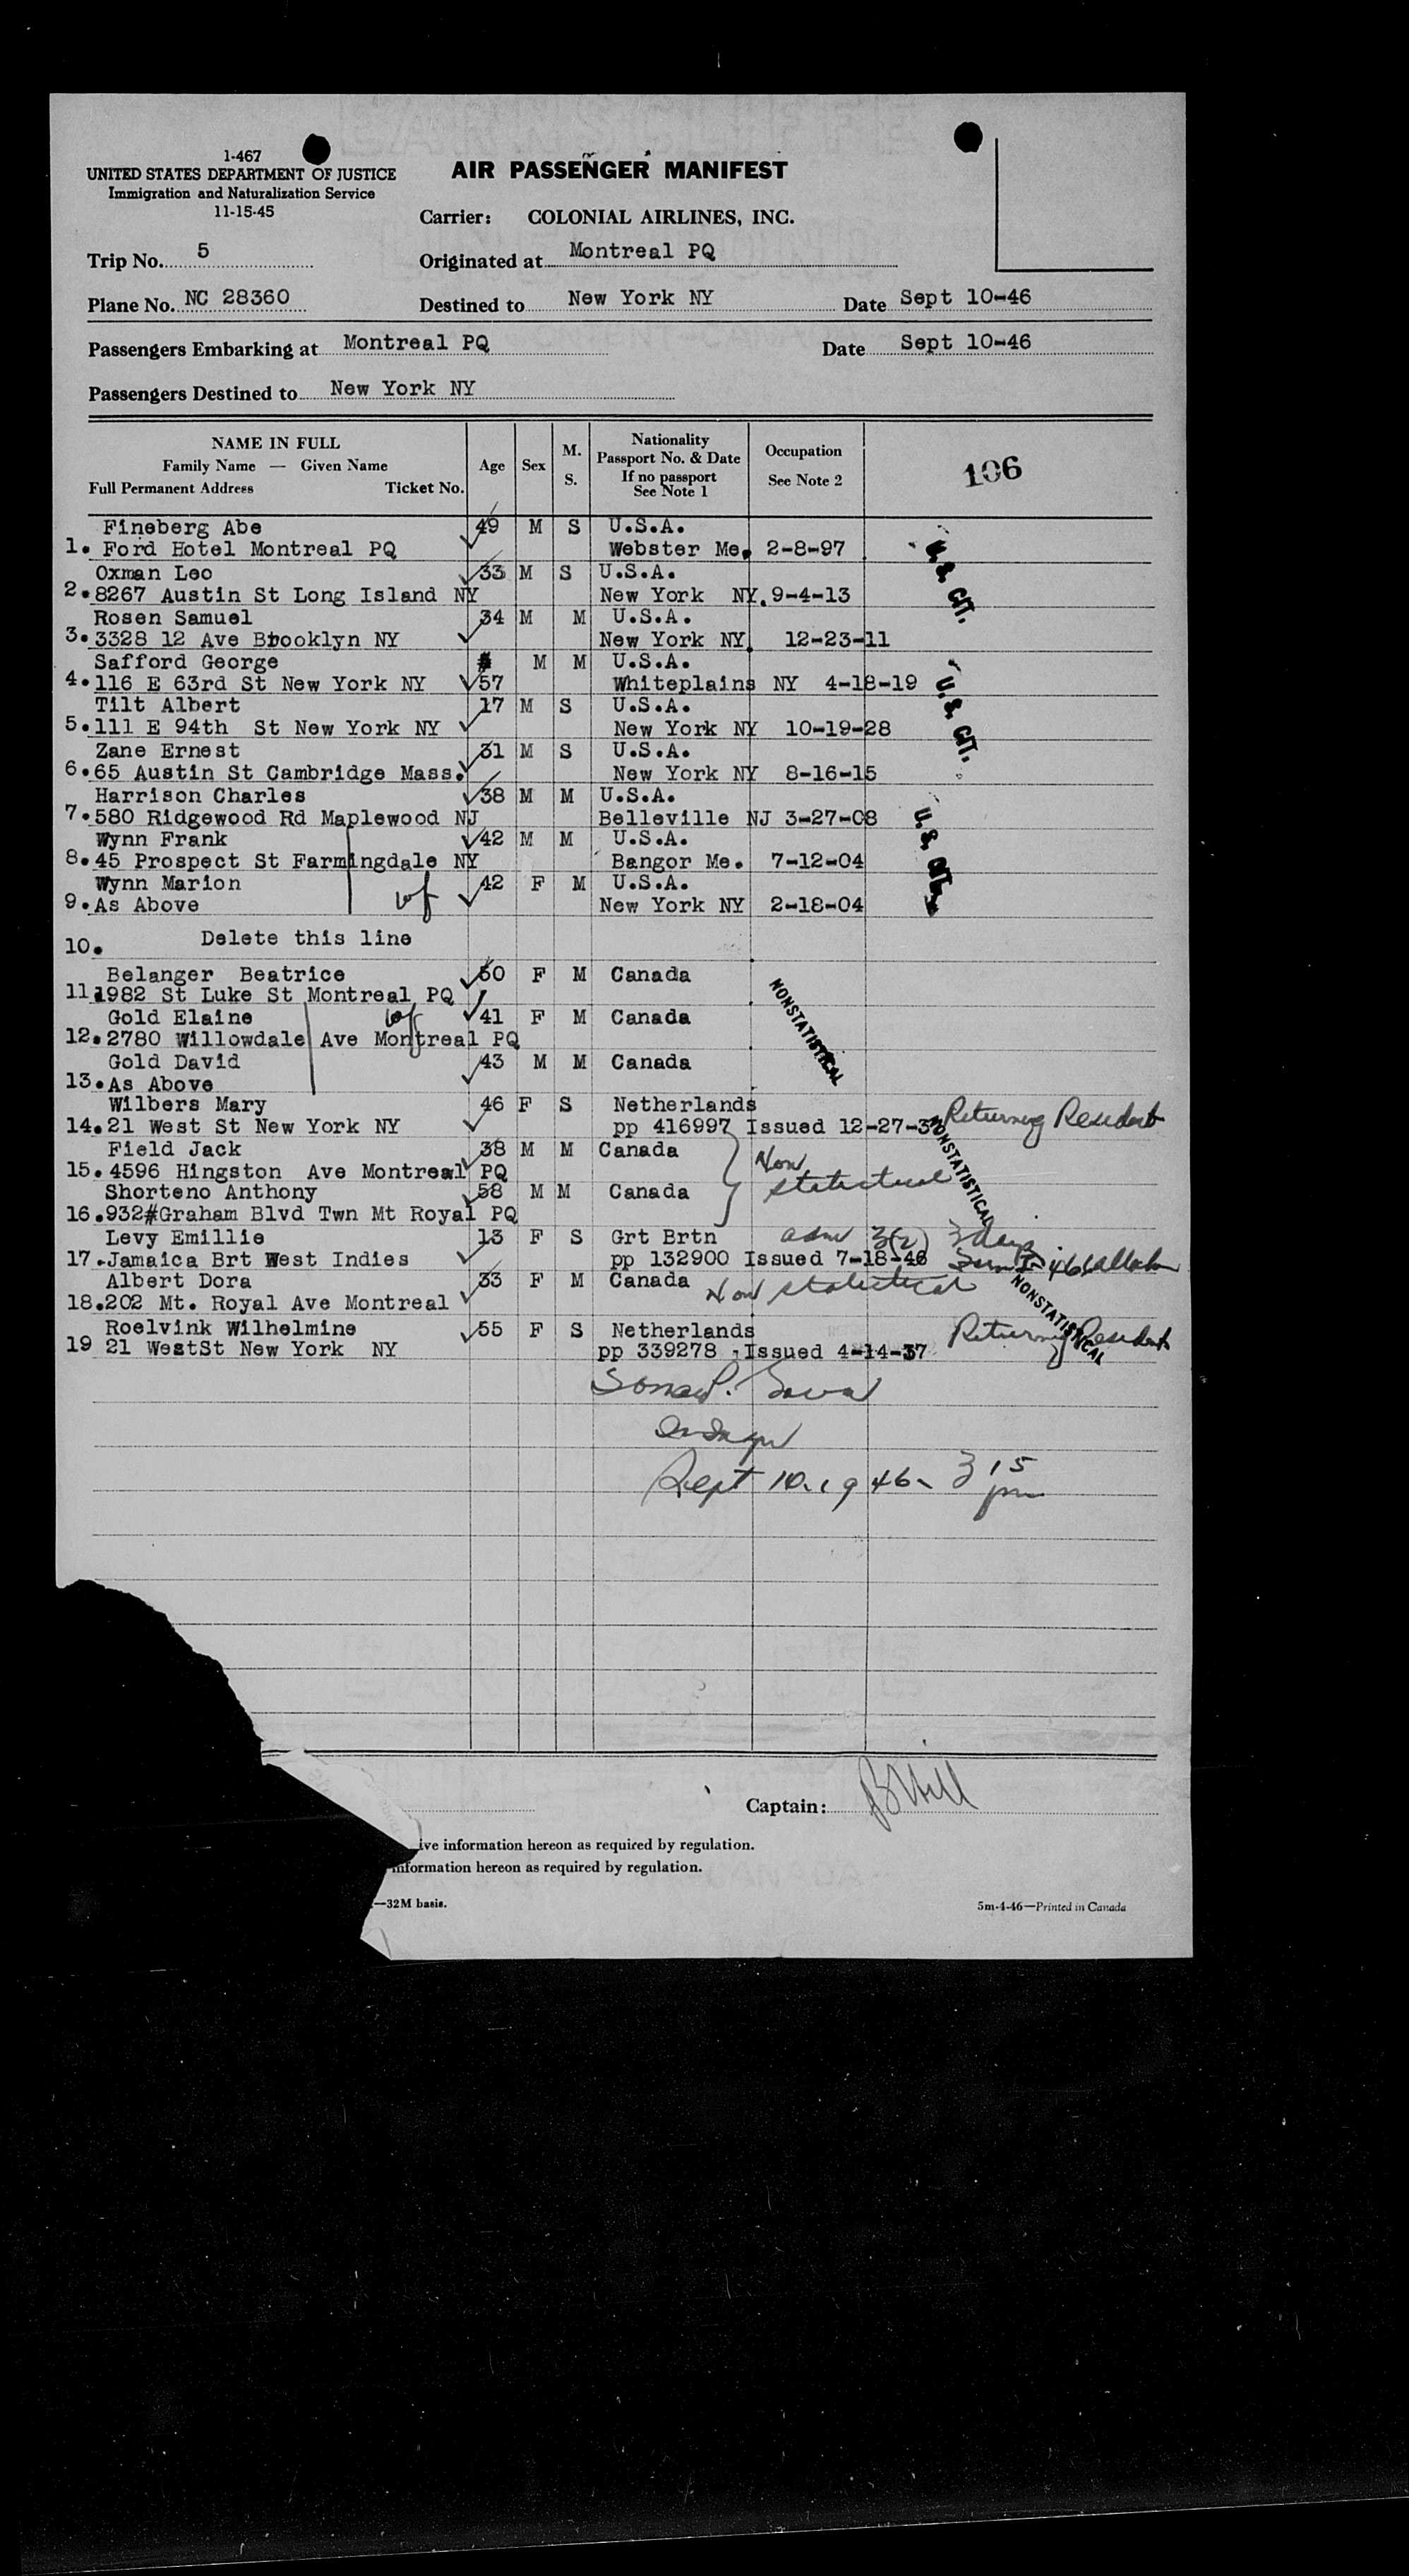 1-467
UNITED STATES DEPARTMENT OF JUSTICE
Immigration and Naturalization Service
11-15-45
AIR PASSENGER MANIFEST
Carrier: COLONIAL AIRLINES, INC.
Trip No. 5 Originated at Montreal PQ
Plane No. NC 28360 Destined to New York NY Date Sept 10-46
Passengers Embarking at Montreal PQ Date Sept 10-46
Passengers Destined to New York NY
NAME IN FULL
Family Name — Given Name
Full Permanent Address Ticket No.
Age
Sex
M.
S.
Nationality
Passport No. & Date
If no passport
See Note 1
Occupation
See Note 2
106
Fineberg Abe 49 M S U.S.A.
1. Ford Hotel Montreal PQ Webster Me. 2-8-97
U.S. CIT.
Oxman Leo 33 M S U.S.A.
2. 8267 Austin St Long Island NY New York NY. 9-4-13
Rosen Samuel 34 M M U.S.A.
3. 3328 12 Ave Brooklyn NY New York NY. 12-23-11
Safford George M M U.S.A.
4. 116 E 63rd St New York NY 57 Whiteplains NY 4-18-19
U.S. CIT.
Tilt Albert 17 M S U.S.A.
5. 111 E 94th St New York NY New York NY 10-19-28
Zane Ernest 31 M S U.S.A.
6. 65 Austin St Cambridge Mass. New York NY 8-16-15
Harrison Charles 38 M M U.S.A.
7. 580 Ridgewood Rd Maplewood NJ Belleville NJ 3-27-08
U.S. CIT.
Wynn Frank 42 M M U.S.A.
8. 45 Prospect St Farmingdale NY Bangor Me. 7-12-04
Wynn Marion wf 42 F M U.S.A.
9. As Above New York NY 2-18-04
10. Delete this line
Belanger Beatrice 50 F M Canada
11. 1982 St Luke St Montreal PQ
NONSTATISTICAL
Gold Elaine wf 41 F M Canada
12. 2780 Willowdale Ave Montreal PQ
Gold David 43 M M Canada
13. As Above
Wilbers Mary 46 F S Netherlands
14. 21 West St New York NY pp 416997 Issued 12-27-3 Returning Resident
NONSTATISTICAL
Field Jack 38 M M Canada
15. 4596 Hingston Ave Montreal PQ Non
Shorteno Anthony 58 M M Canada statistical
16. 932#Graham Blvd Twn Mt Royal PQ
Levy Emillie 13 F S Grt Brtn adm 3(2) 3 days
17. Jamaica Brt West Indies pp 132900 Issued 7-18-46
Albert Dora 33 F M Canada Non statistical
18. 202 Mt. Royal Ave Montreal
NONSTATISTICAL
Roelvink Wilhelmine 55 F S Netherlands Returning Resident
19 21 WestSt New York NY pp 339278 Issued 4-14-37
Sept 10. 1946 - 3 15 pm
Captain: B Hill
ive information hereon as required by regulation.
information hereon as required by regulation.
—32M basis.
5m-4-46—Printed in Canada